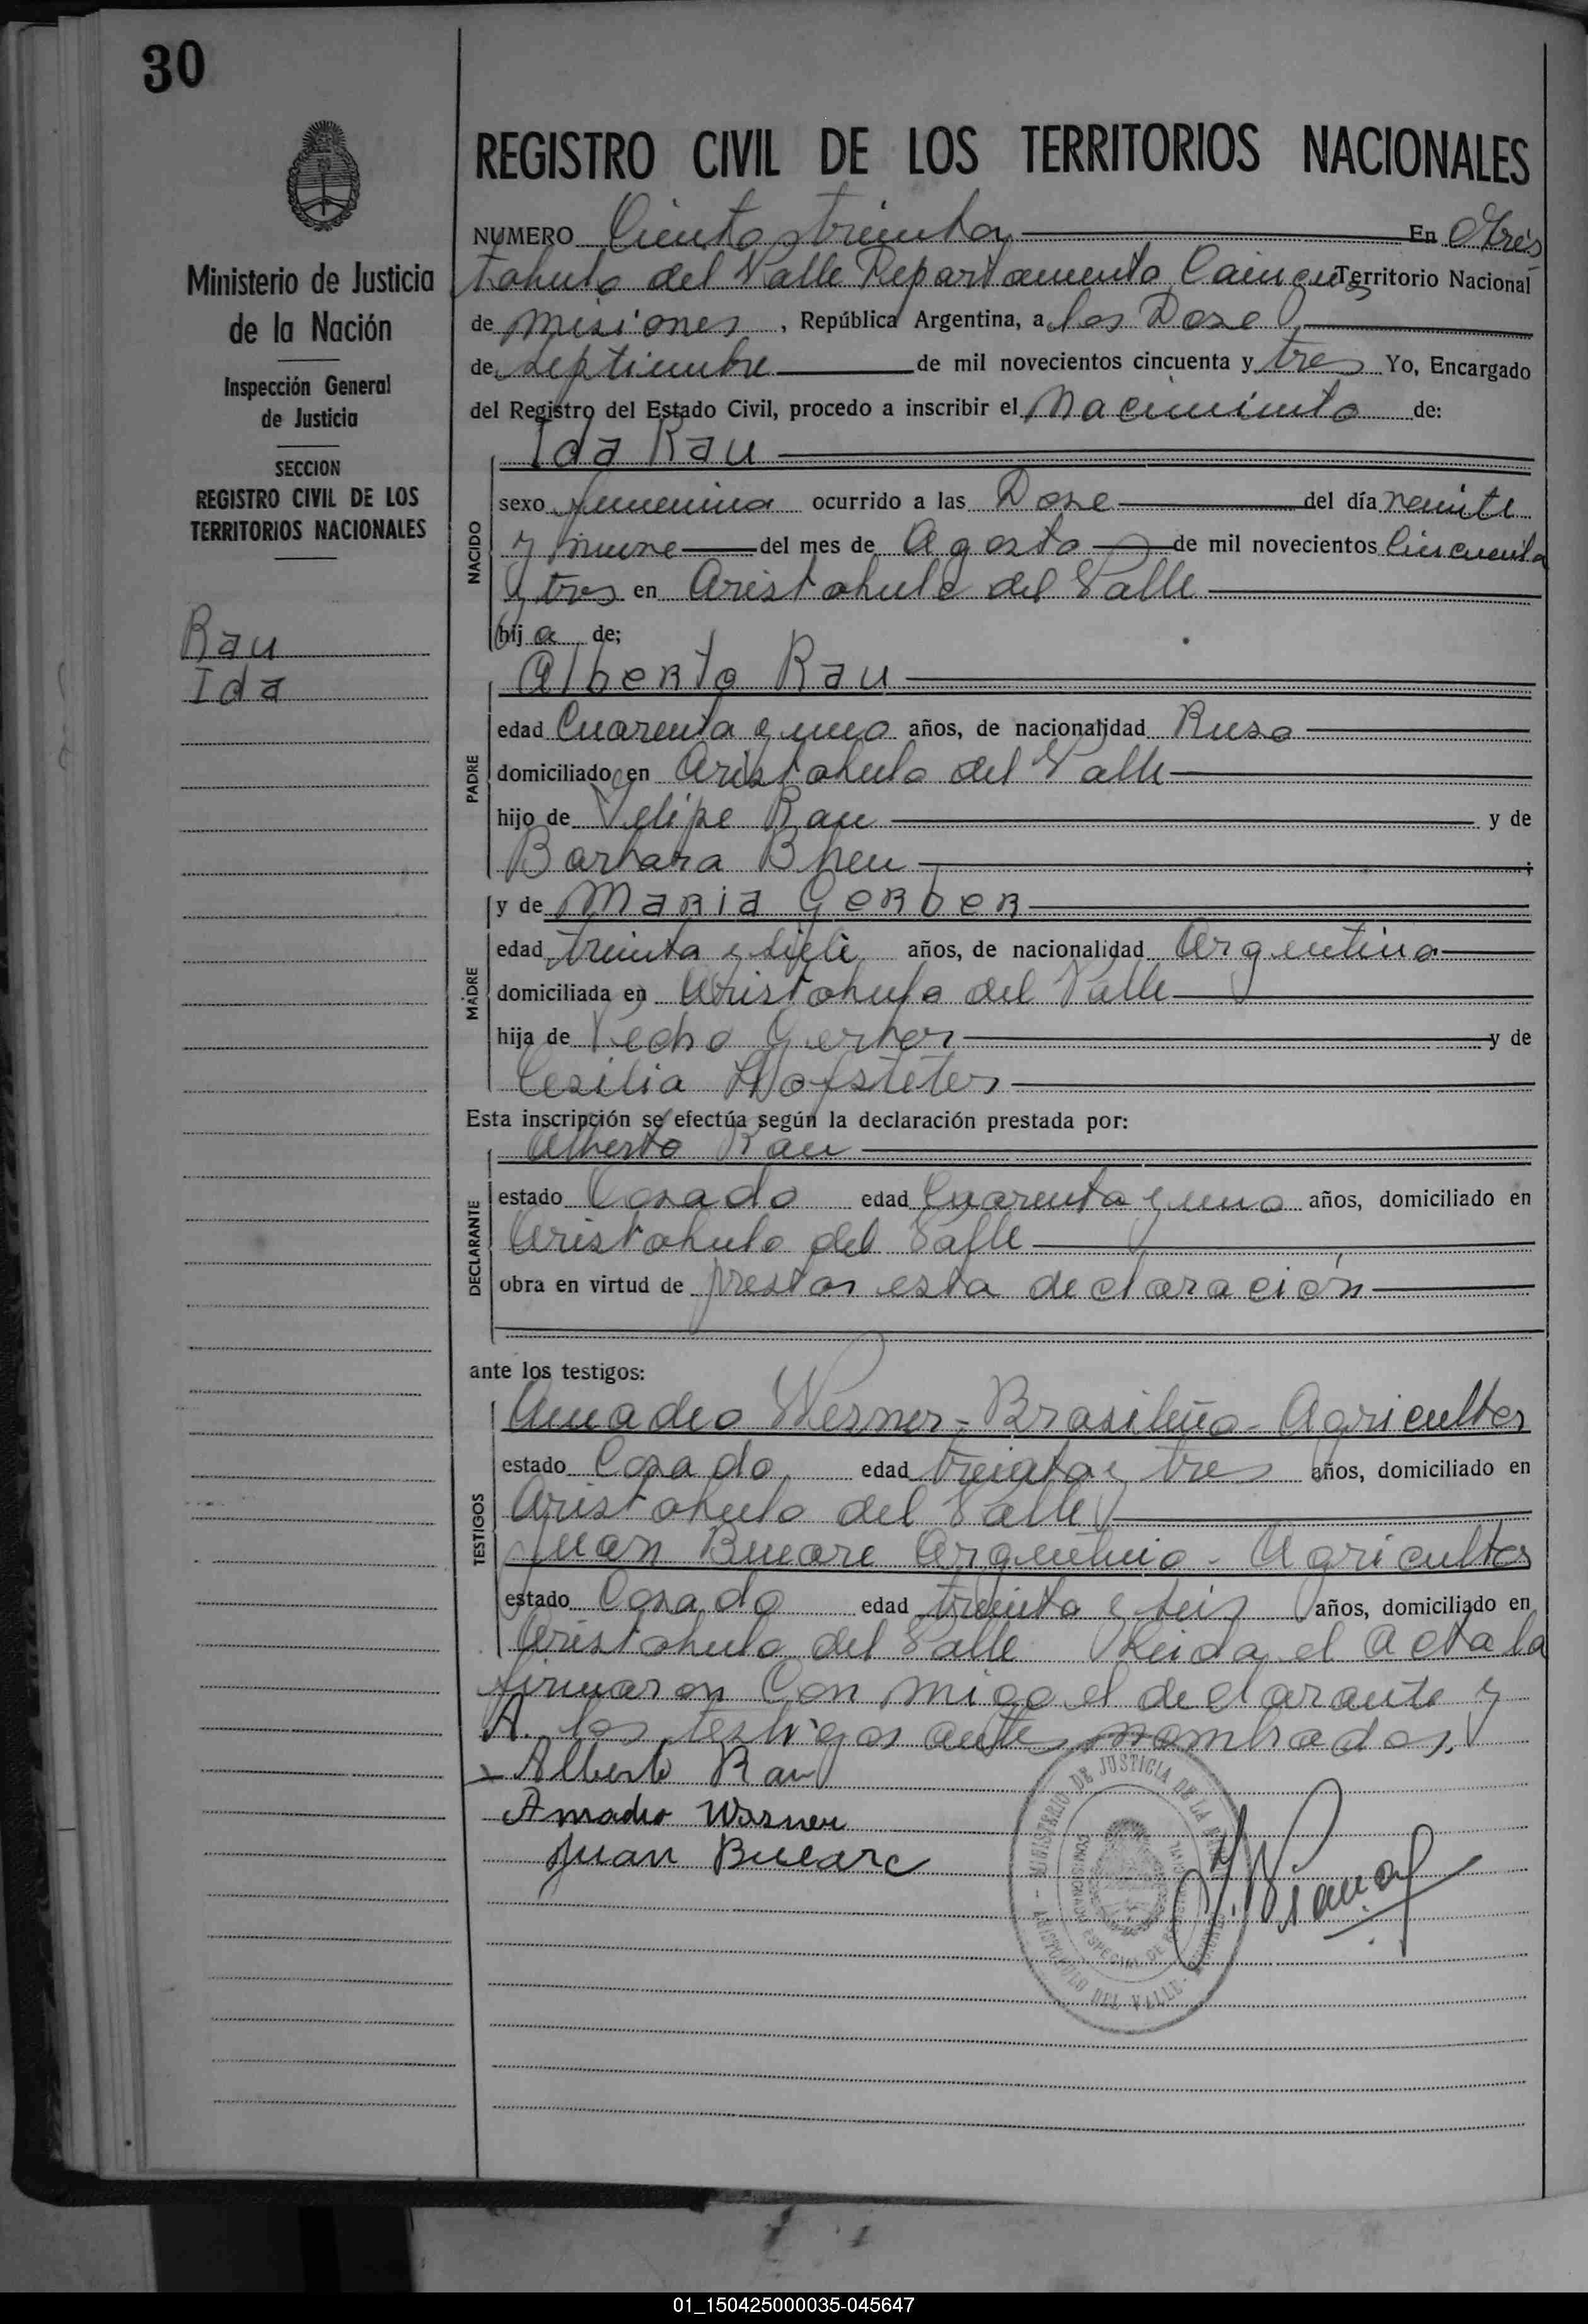 30
REGISTRO CIVIL DE LOS TERRITORIOS NACIONALES
Ministerio de Justicia
de la Nación
Inspección General
de Justicia
SECCION
REGISTRO CIVIL DE LOS
TERRITORIOS NACIONALES
Rau
Ida
NUMERO Ciento treinta En Aris
tobulo del Valle Departamento Cainguas Territorio Nacional
de Misiones, República Argentina, a los Dose
de septiembre de mil novecientos cincuenta y tres Yo, Encargado
del Registro del Estado Civil, procedo a inscribir el Nacimiento de:
Ida Rau
NACIDO
sexo femenina ocurrido a las Dose del día veinte
y nueve del mes de Agosto de mil novecientos Cincuenta
y tres en Aristobulo del Valle
hij a de;
Alberto Rau
PADRE
edad Cuarenta y uno años, de nacionalidad Ruso
domiciliado en Aristobulo del Valle
hijo de Felipe Rau y de
Barbara Bheu;
y de Maria Gerber
MADRE
edad treinta y siete años, de nacionalidad Argentina
domiciliada en Aristobulo del Valle
hija de Pedro Gerber y de
Cesilia Hofsteter
Esta inscripción se efectúa según la declaración prestada por:
Alberto Rau
DECLARANTE
estado Casado edad Cuarenta y uno años, domiciliado en
Aristobulo del Valle
obra en virtud de prestar esta declaración
ante los testigos:
TESTIGOS
Amadeo Werner - Brasileño - Agricultor
estado Casado edad treinta y tres años, domiciliado en
Aristobulo del Valle
Juan Argentino - Agricultor
estado Casado edad treinta y seis años, domiciliado en
Aristobulo del Valle Leida el Acta la
firmaron Con migo el declarante y
A. los testigos ante nombrados.
x Alberto Rau
Amadeo Werner
Juan
MINISTERIO DE JUSTICIA DE LA
ARISTOBULO DEL VALLE
01_150425000035-045647